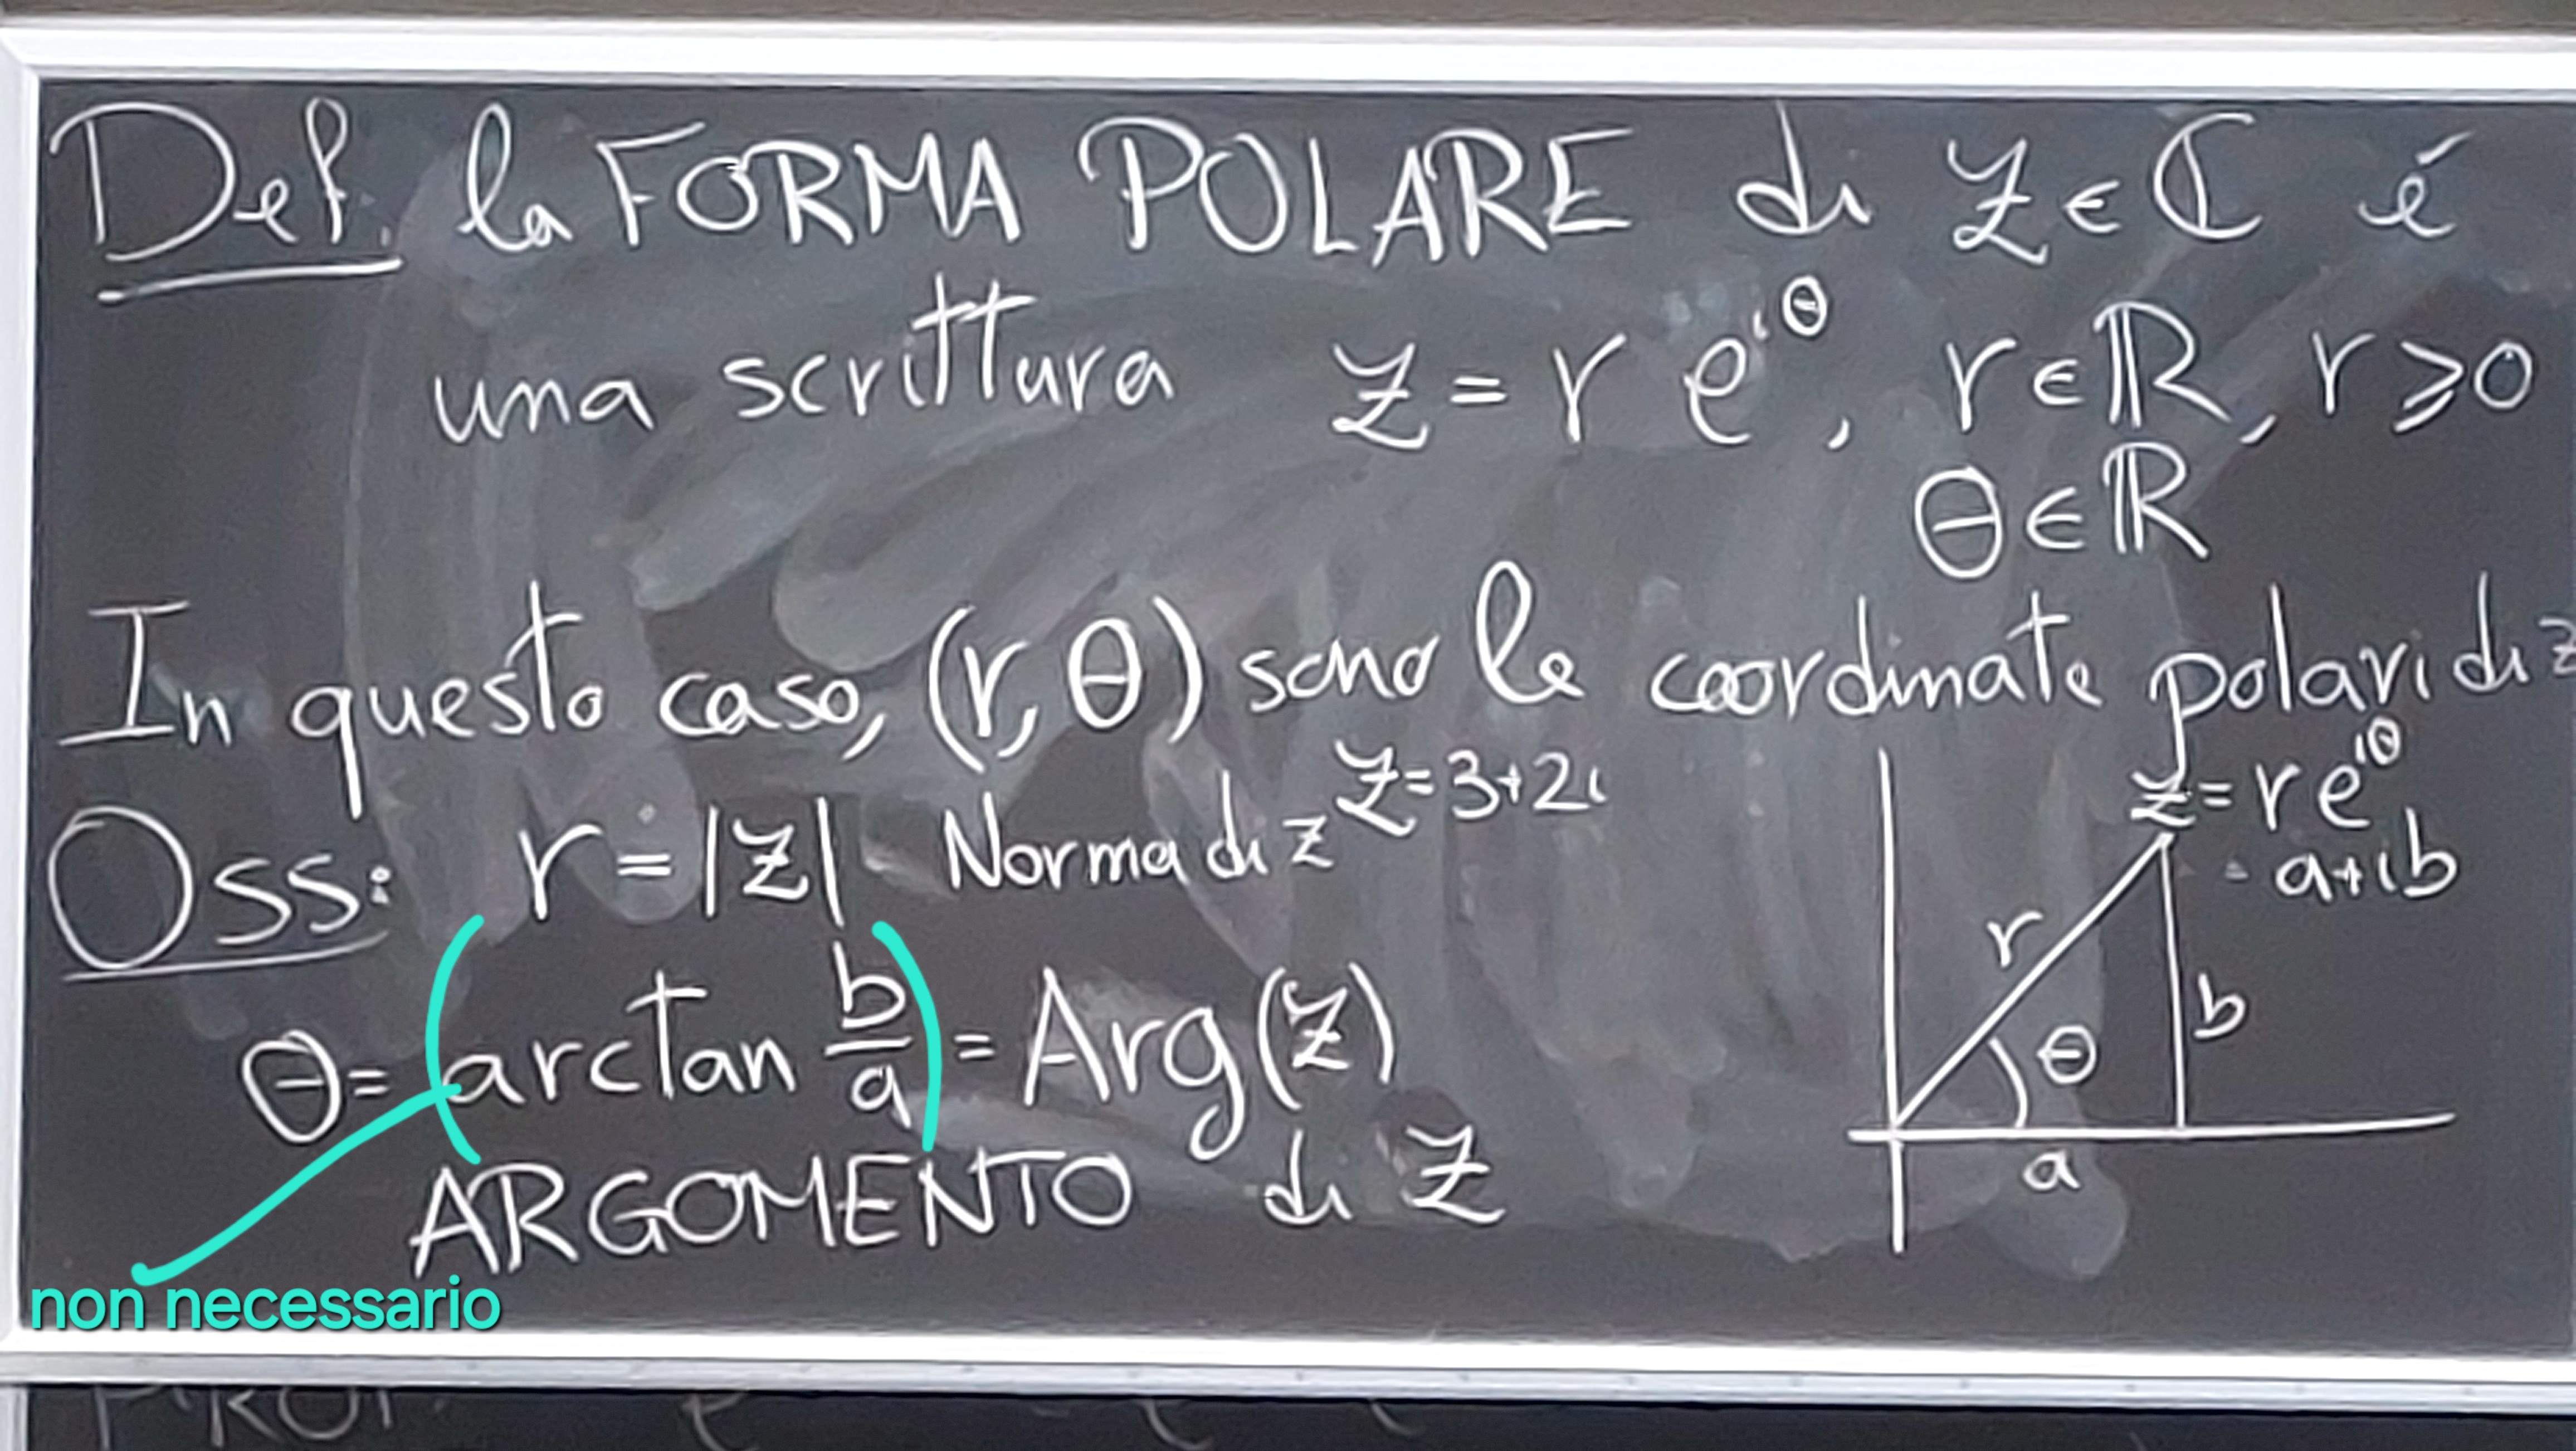 Def. la FORMA POLARE di z∈ℂ é
una scrittura z = r e^{iθ}, r∈ℝ, r⩾0
θ∈ℝ
In questo caso, (r,θ) sono le coordinate polari di z
Oss: r = |z| Norma di z z=3+2i
θ= (arctan b/a) = Arg(z)
ARGOMENTO di z
non necessario
z= r e^{iθ}
= a+ib
r
b
θ
a